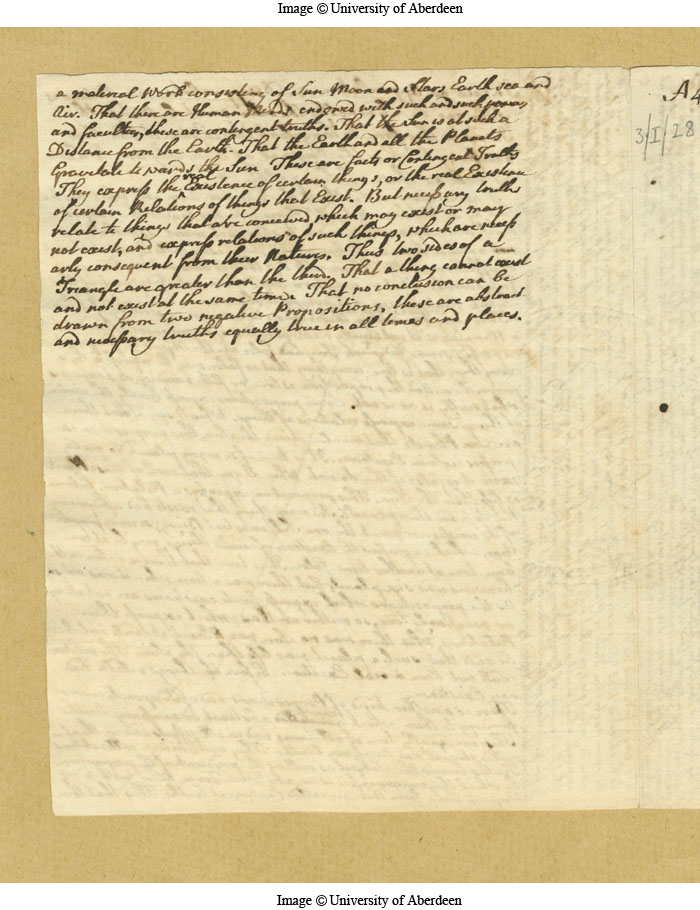 Image © University of Aberdeen
a material World consisting of Sun Moon and Stars Earth sea and
Air. That there are Human Minds endowed with such and such powers
and faculties, these are contingent truths. That the Sun is at such a
Distance from the Earth. That the Earth and all the Planets
Gravitate towards the Sun These are facts or Contingent Truths
They express the real Existence of certain things, or the real Existence
of certain Relations of things that Exist. But necessary truths
relate to things that are conceived which may exist or may
not exist, and express relations of such things, which are necess
arly consequent from their Natures. Thus two sides of a
Triangle are greater than the third. That a thing cannot exist
and not exist at the same time. That no conclusion can be
drawn from two negative Propositions, these are abstract
and necessary truths equally true in all times and places.
A4
3/I/28
Image © University of Aberdeen